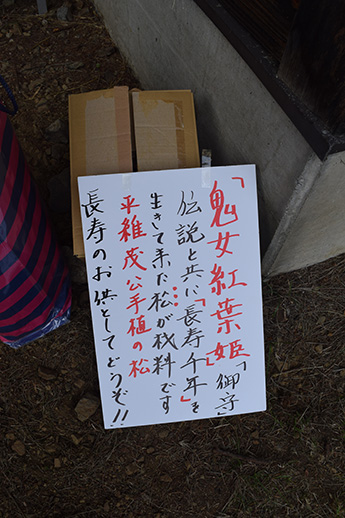 「鬼女紅葉姫」「御守」
伝説と共に「長寿千年」を
生きて来た松が材料です
平維茂公手植の松
長寿のお供としてどうぞ!!